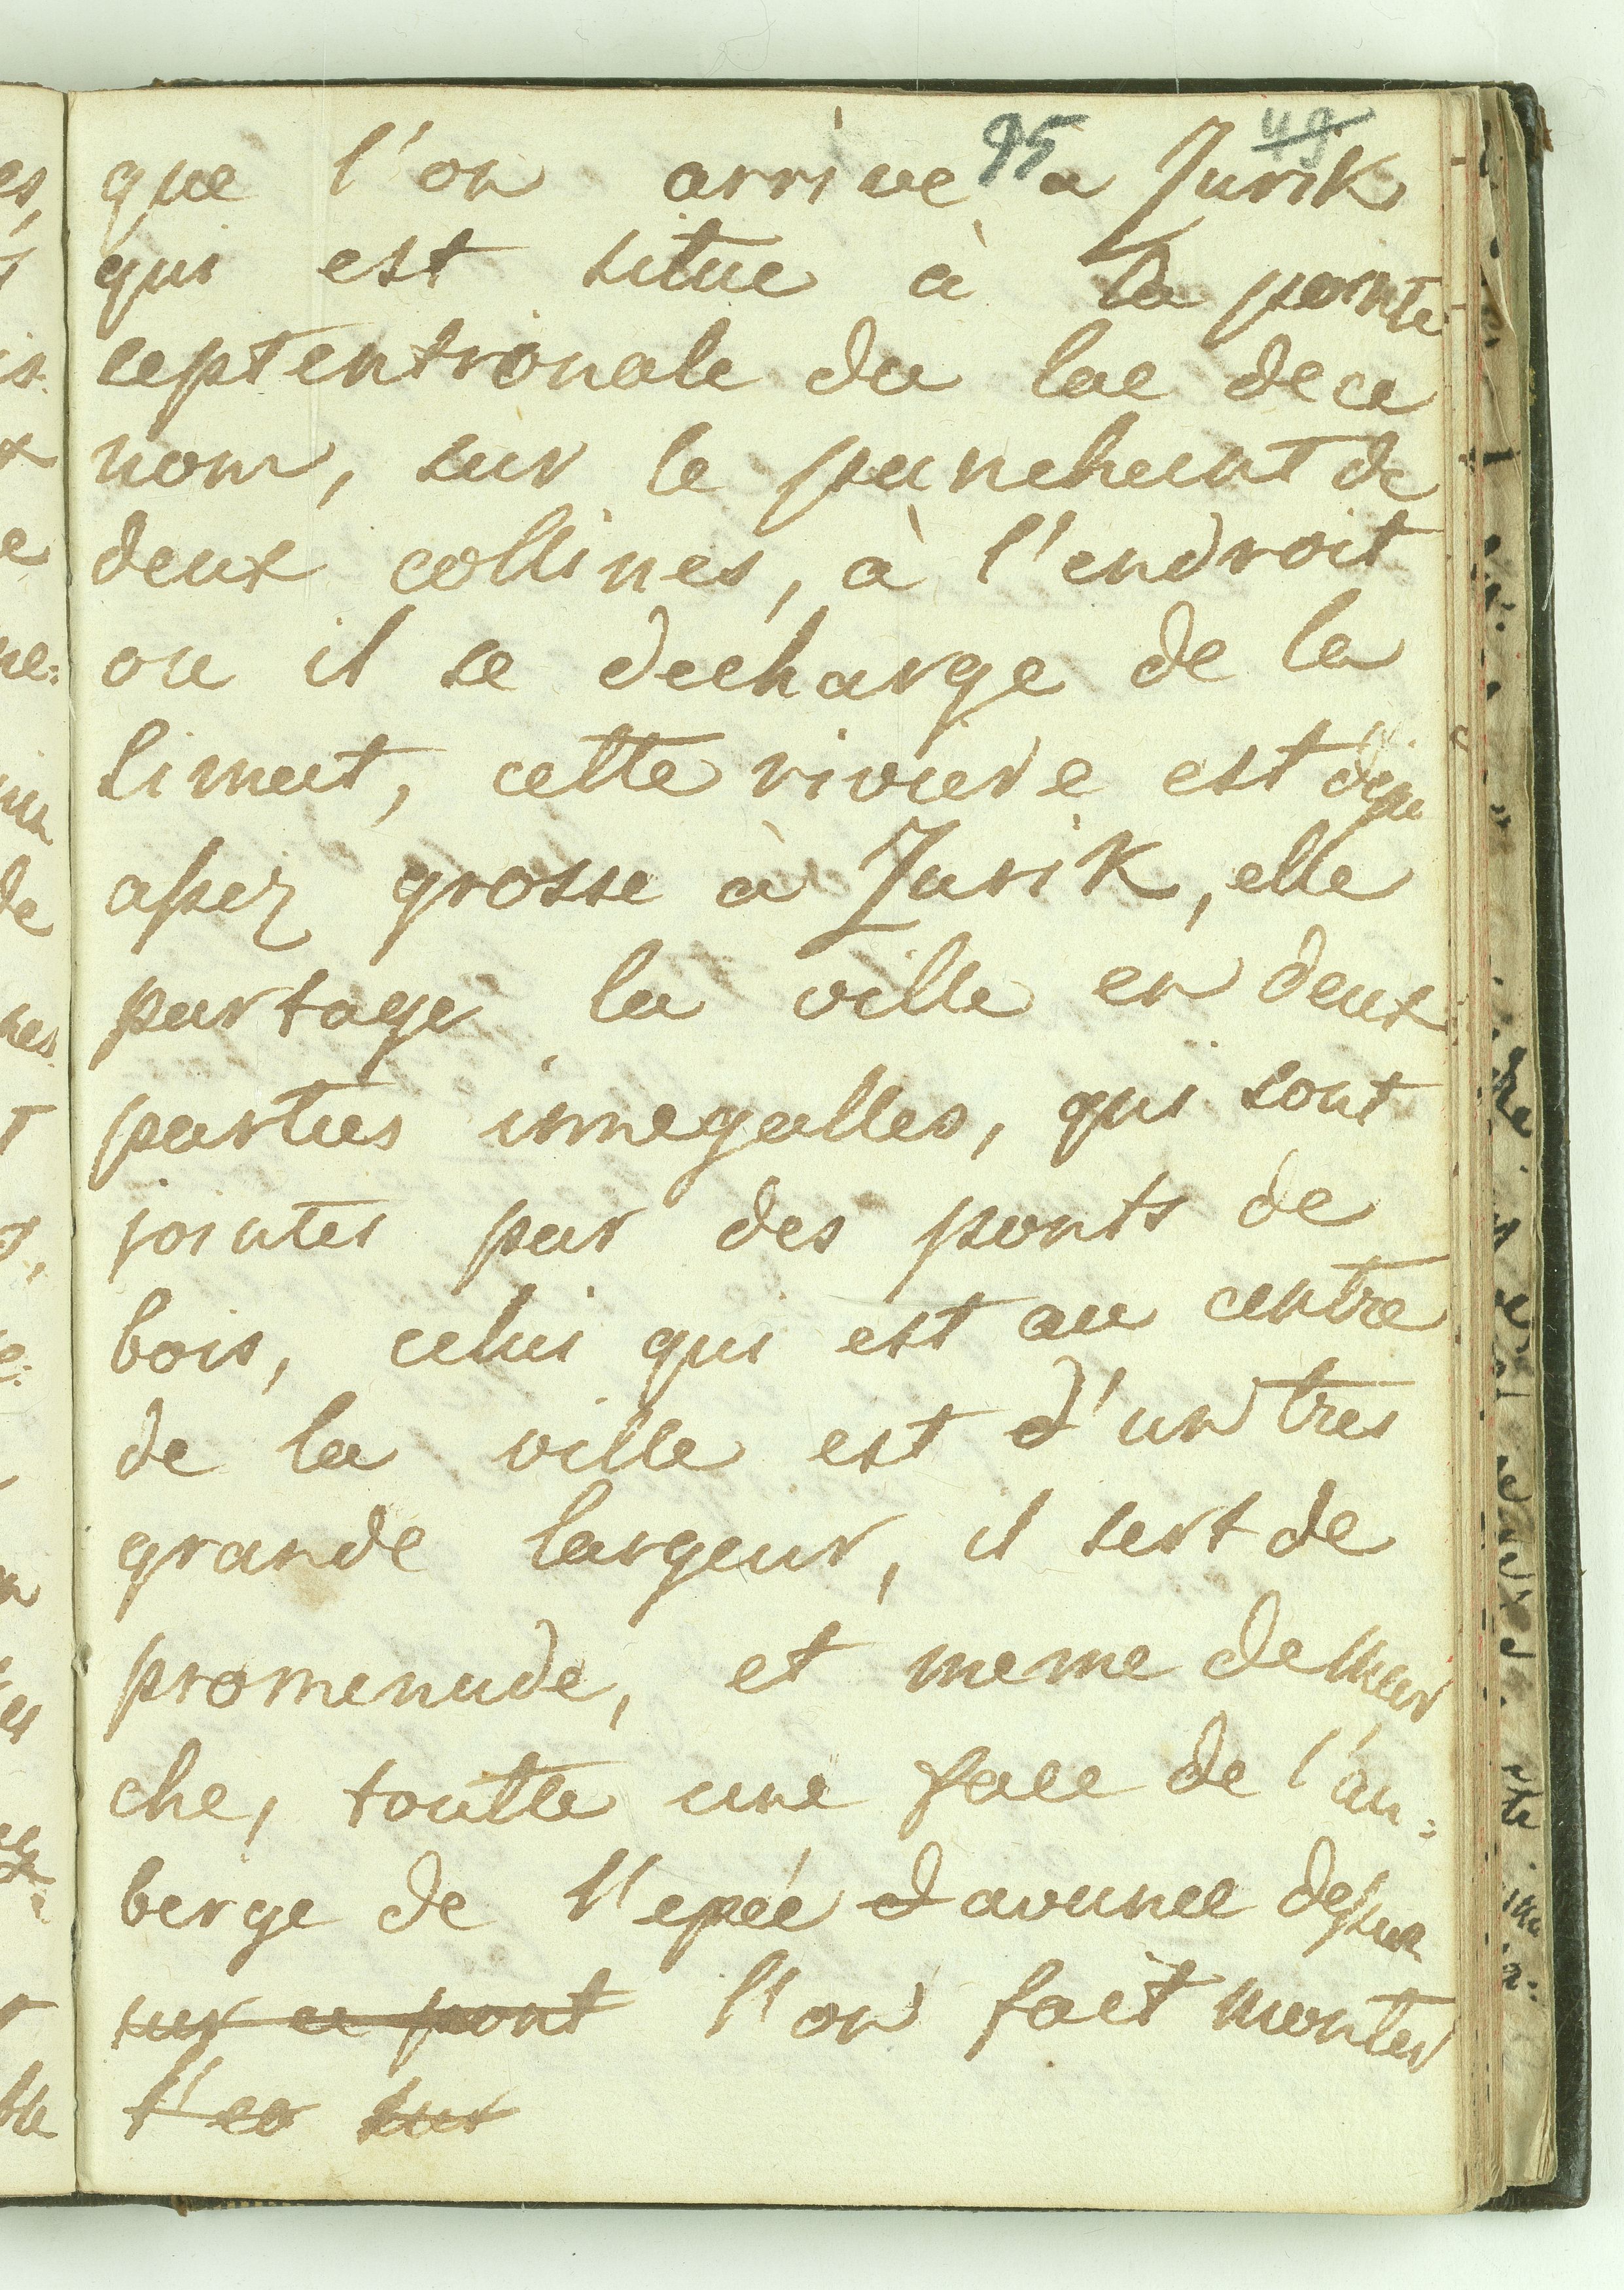 95 49
que l'on arrive a Zurik
qui est situe à la pointe
ceptentrionale du lac de ce
nom, sur le panchant de
deux collines, à l'endroit
ou il se decharge de la
limat, cette riviere est deja
assez grosse à Zurik, elle
partage la ville en deux
parties innegalles, qui sont
jointes par des ponts de
bois, celui qui est au centre
de la ville est d'un tres
grande largeur, il sert de
promenade, et meme de mar
che, toutte une face de l'au:
berge de l'epée d avance dessus
sur ce pont l'on fait monter
l'eo sur